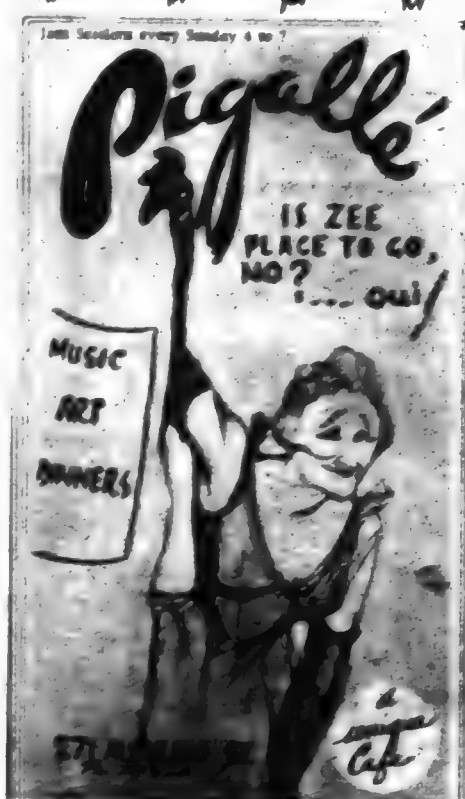 Jam Sessions every Sunday 4 to 7
Pigallé
IS ZEE
PLACE TO GO,
NO?
.... oui!
MUSIC
ART
DINNERS
a
unique
Cafe